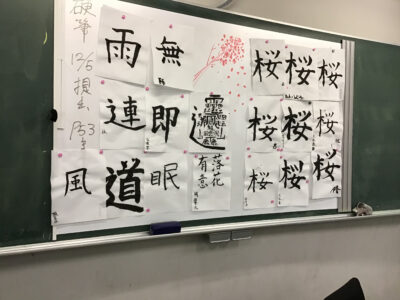 硬筆
12/6
提出
P53
雨
無
連
即
風
道
眠
落花
有意
桜 桜 桜
桜 桜 桜
桜 桜 桜